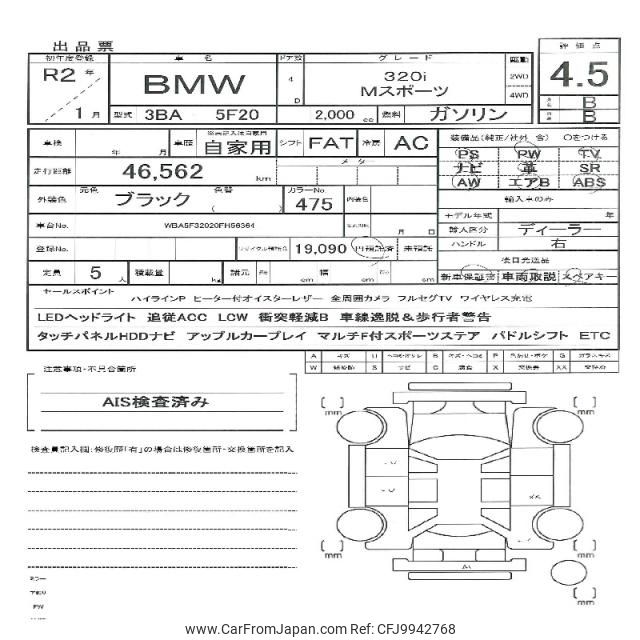 出品票
初年度登録 車名 ドア数 グレード 駆動 評価点
R2年 BMW 4D 320i Mスポーツ 2WD 4WD 4.5
1月 型式 3BA 5F20 2,000cc 燃料 ガソリン B
B
車検 年 月 車歴 自家用 シフト FAT 冷房 AC
装備品(純正/社外 含) ○をつける
PS PW TV
走行距離 46,562 km メーター
ナビ 革 SR
AW エアB ABS
外装色 元色 ブラック 色替 ( ) カラーNo. 475 内装色
輸入車のみ
モデル年式 年
車台No. WBA5F32020FH56364 月 日
輸入区分 ディーラー
登録No. リサイクル預託金 19,090 円 預託済 未預託
ハンドル 右
後日発送品
定員 5人 積載量 kg 諸元 長 cm 幅 cm 高 cm
新車保証書 車両取説 スペアキー
セールスポイント
ハイラインP ヒーター付オイスターレザー 全周囲カメラ フルセグTV ワイヤレス充電
LEDヘッドライト 追従ACC LCW 衝突軽減B 車線逸脱&歩行者警告
タッチパネルHDDナビ アップルカープレイ マルチF付スポーツステア パドルシフト ETC
A キズ U B キズ・ヘコミ P G
W S サビ C 腐食 X XX
注意事項・不具合箇所
AIS検査済み
検査員記入欄:修復歴「有」の場合は修復箇所・交換箇所を記入
[ ] mm [ ] mm
XX
[ ] mm [ ] mm
A1
[ ] mm
PW
www.CarFromJapan.com Ref: CFJ9942768